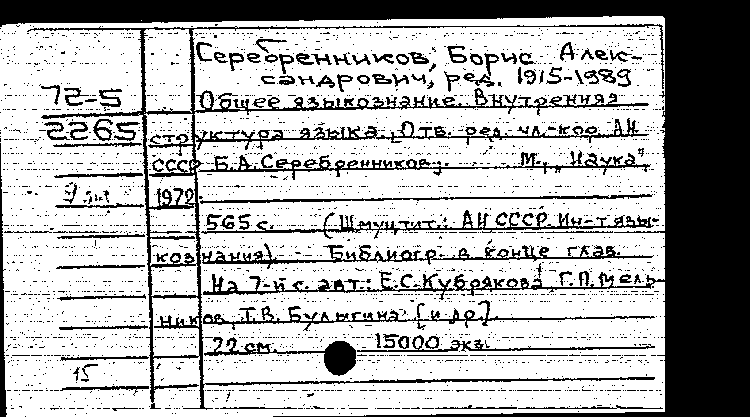 Серебренников, Борис Алек-
сандрович, ред. 1915-1989
72-5
Общее языкознание. Внутренняя
2265
структура языка. Отв. ред. чл.-кор. АН
СССР Б.А.Серебренников. М., "Наука",
1972.
565 с. (Шмуцтит.: АН СССР. Ин-т язы-
кознания). - Библиогр. в конце глав.
На 7-й с. авт.: Е.С.Кубрякова, Г.П.Мель-
ников, Т.В. Булыгина [и др].
22 см. 15000 экз.
15